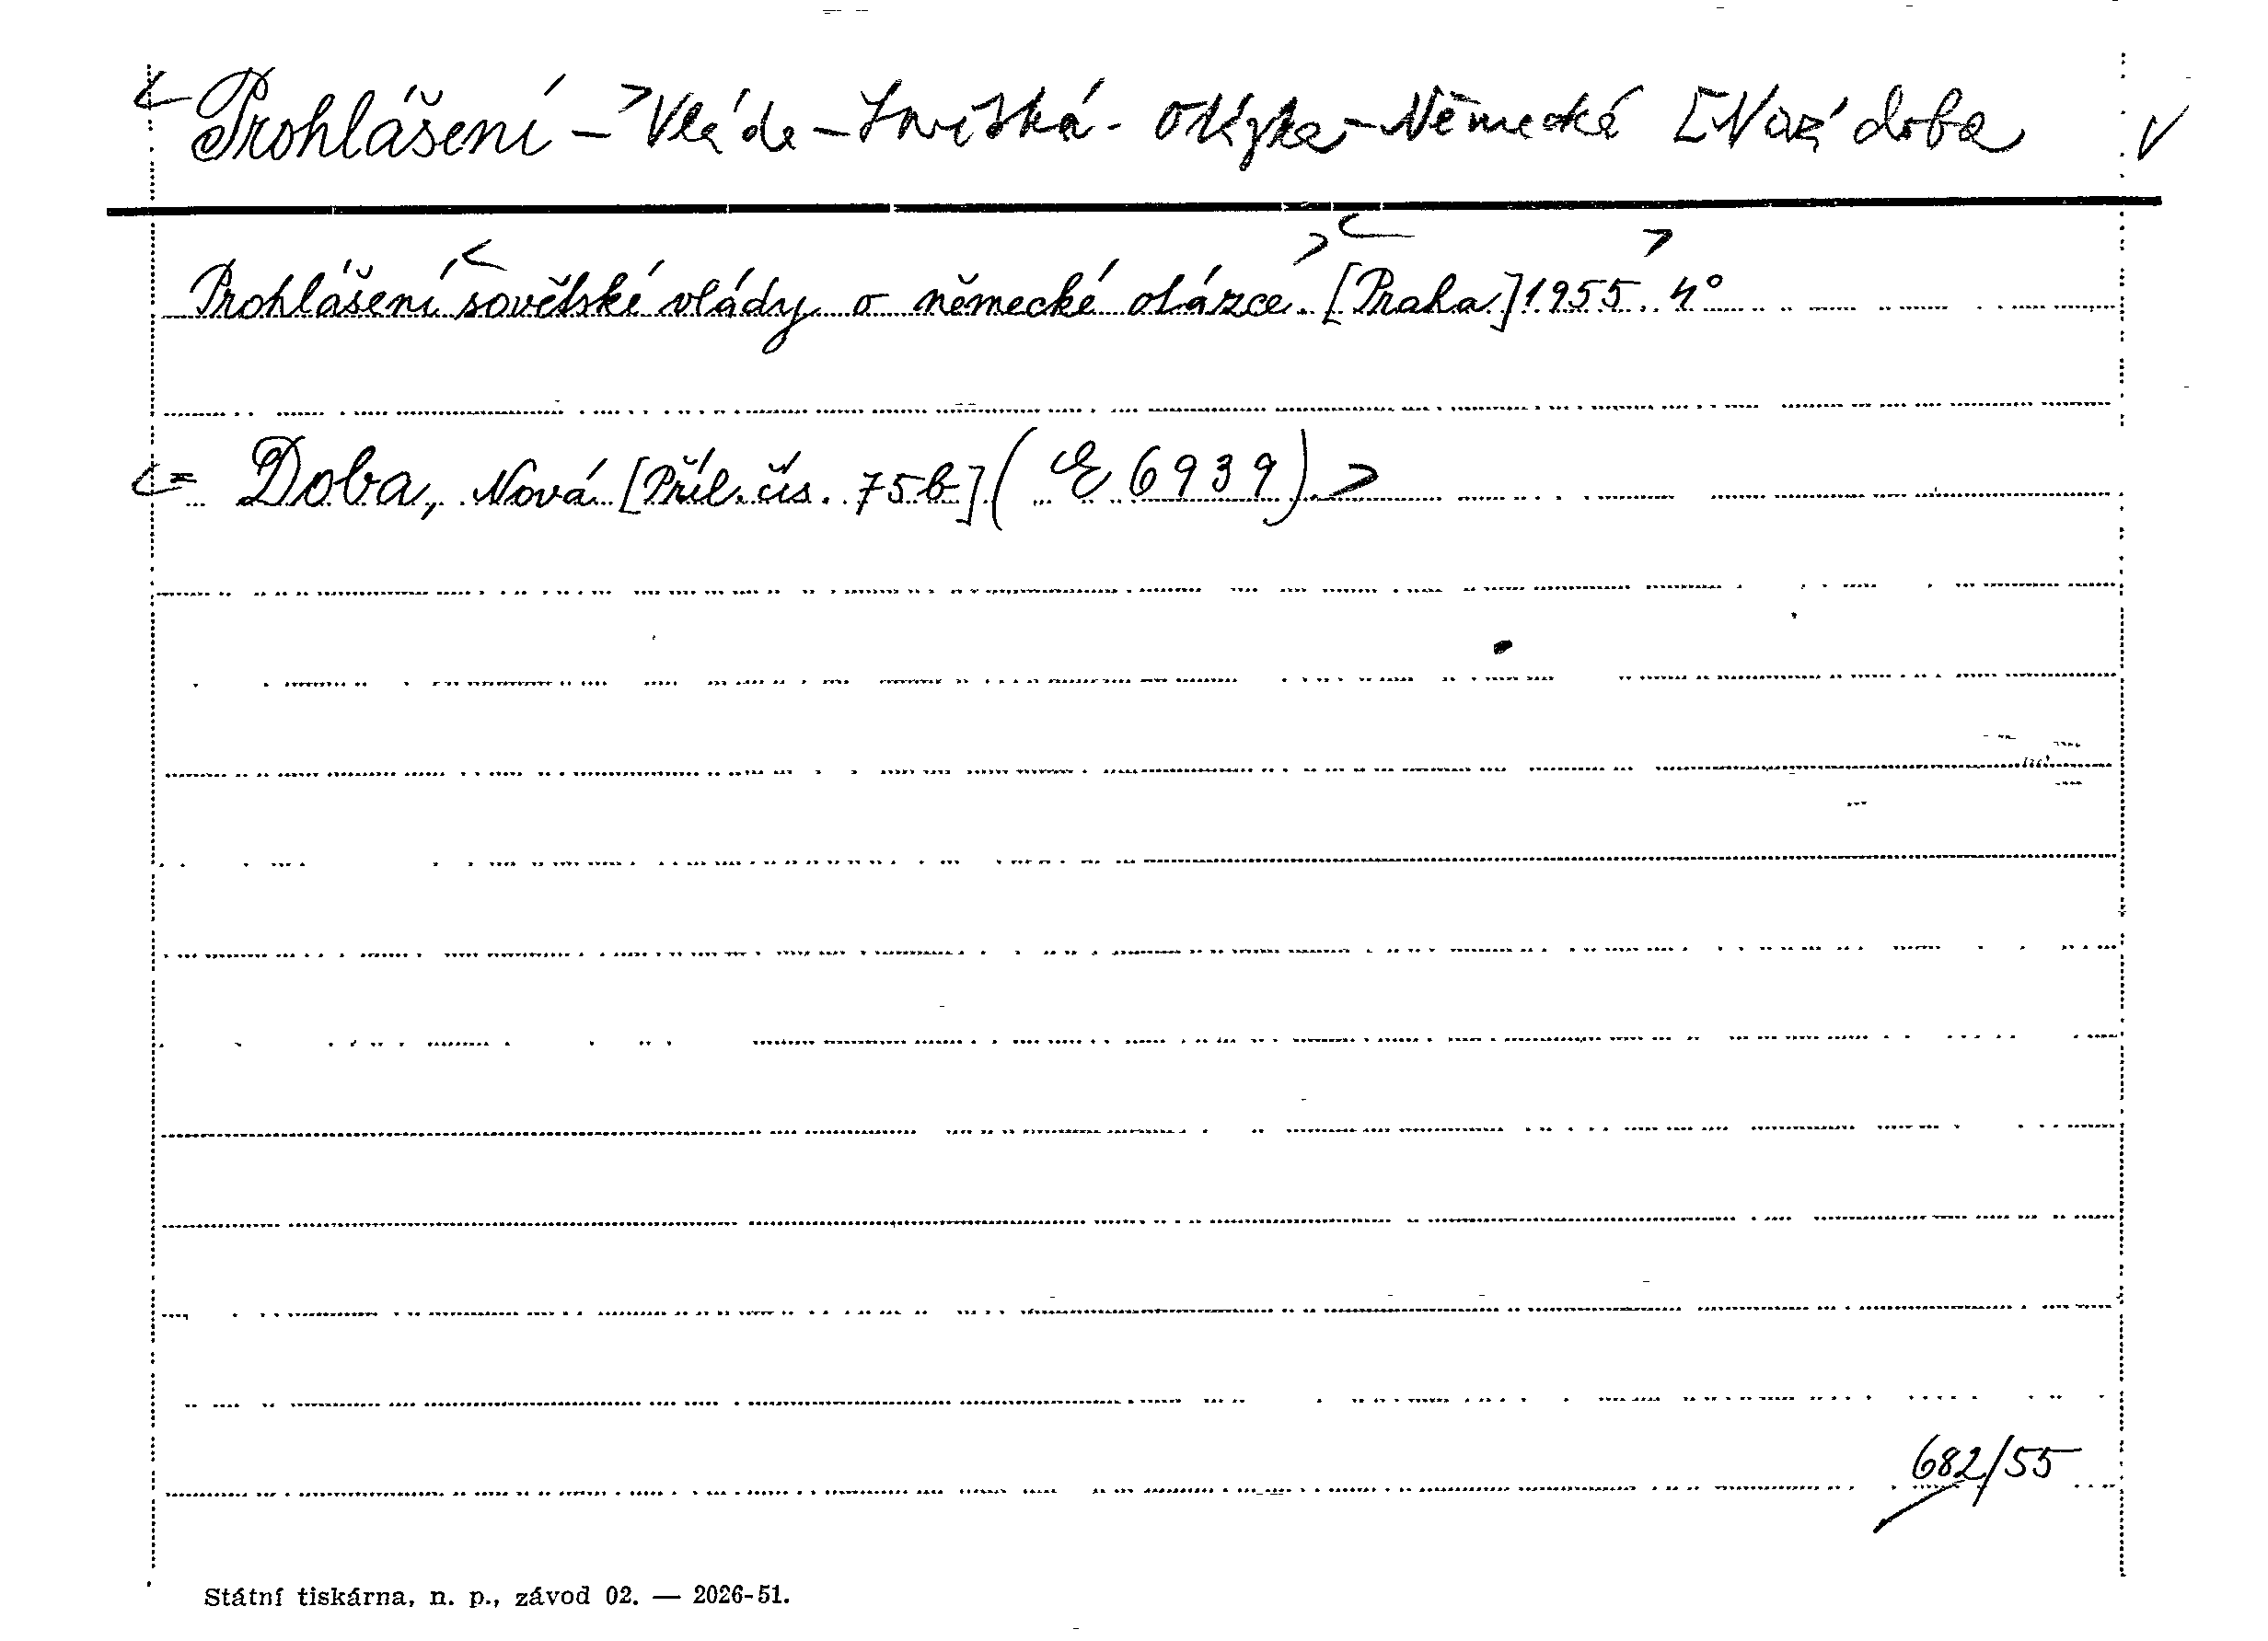 Prohlášení – Vláda – Sovětská - Otázka – Německá [Nová doba
Prohlášení sovětské vlády o německé otázce. [Praha] 1955. 4°
= Doba, Nová [Příl. čís. 75b] (E 6939)
682/55
Státní tiskárna, n. p., závod 02. — 2026-51.